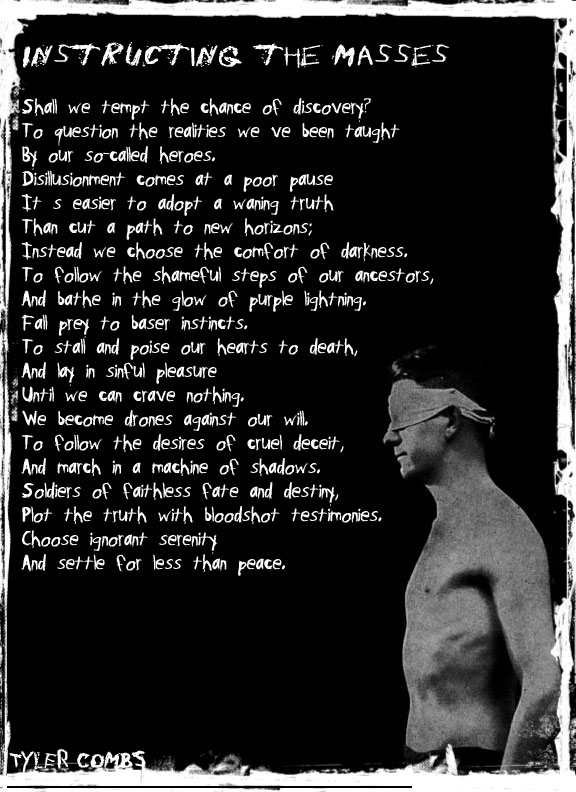 INSTRUCTING THE MASSES
Shall we tempt the chance of discovery?
To question the realities we ve been taught
By our so-called heroes.
Disillusionment comes at a poor pause
It s easier to adopt a waning truth
Than cut a path to new horizons;
Instead we choose the comfort of darkness.
To follow the shameful steps of our ancestors,
And bathe in the glow of purple lightning.
Fall prey to baser instincts.
To stall and poise our hearts to death,
And lay in sinful pleasure
Until we can crave nothing.
We become drones against our will.
To follow the desires of cruel deceit,
And march in a machine of shadows.
Soldiers of faithless fate and destiny,
Plot the truth with bloodshot testimonies.
Choose ignorant serenity
And settle for less than peace.
TYLER COMBS